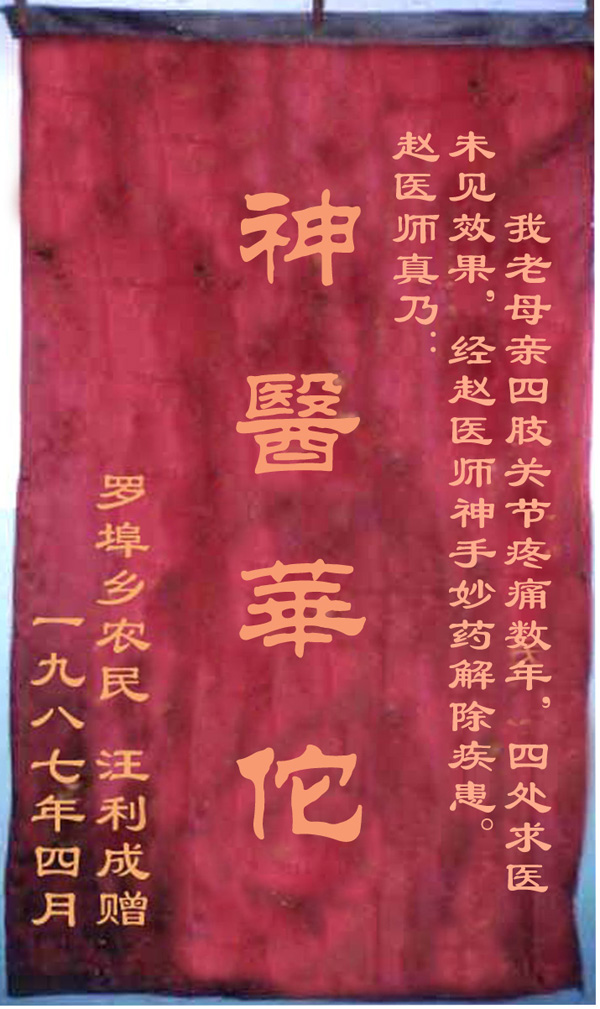 我老母亲四肢关节疼痛数年，四处求医
未见效果，经赵医师神手妙药解除疾患。
赵医师真乃：
神醫華佗
罗埠乡农民 汪利成赠
一九八七年四月